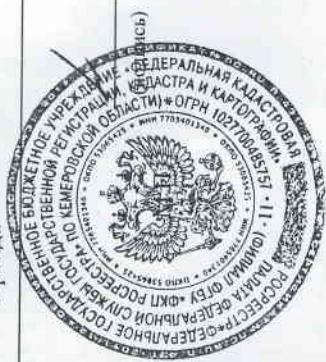 ФЕДЕРАЛЬНОЕ ГОСУДАРСТВЕННОЕ БЮДЖЕТНОЕ УЧРЕЖДЕНИЕ «ФЕДЕРАЛЬНАЯ КАДАСТРОВАЯ
ПАЛАТА ФЕДЕРАЛЬНОЙ СЛУЖБЫ ГОСУДАРСТВЕННОЙ РЕГИСТРАЦИИ, КАДАСТРА И КАРТОГРАФИИ»
(ФИЛИАЛ ФГБУ «ФКП РОСРЕЕСТРА» ПО КЕМЕРОВСКОЙ ОБЛАСТИ) * ОГРН 1027700485757 * 11 *
РОСРЕЕСТР *
* ИНН 7705401340 * ОКПО 53065425